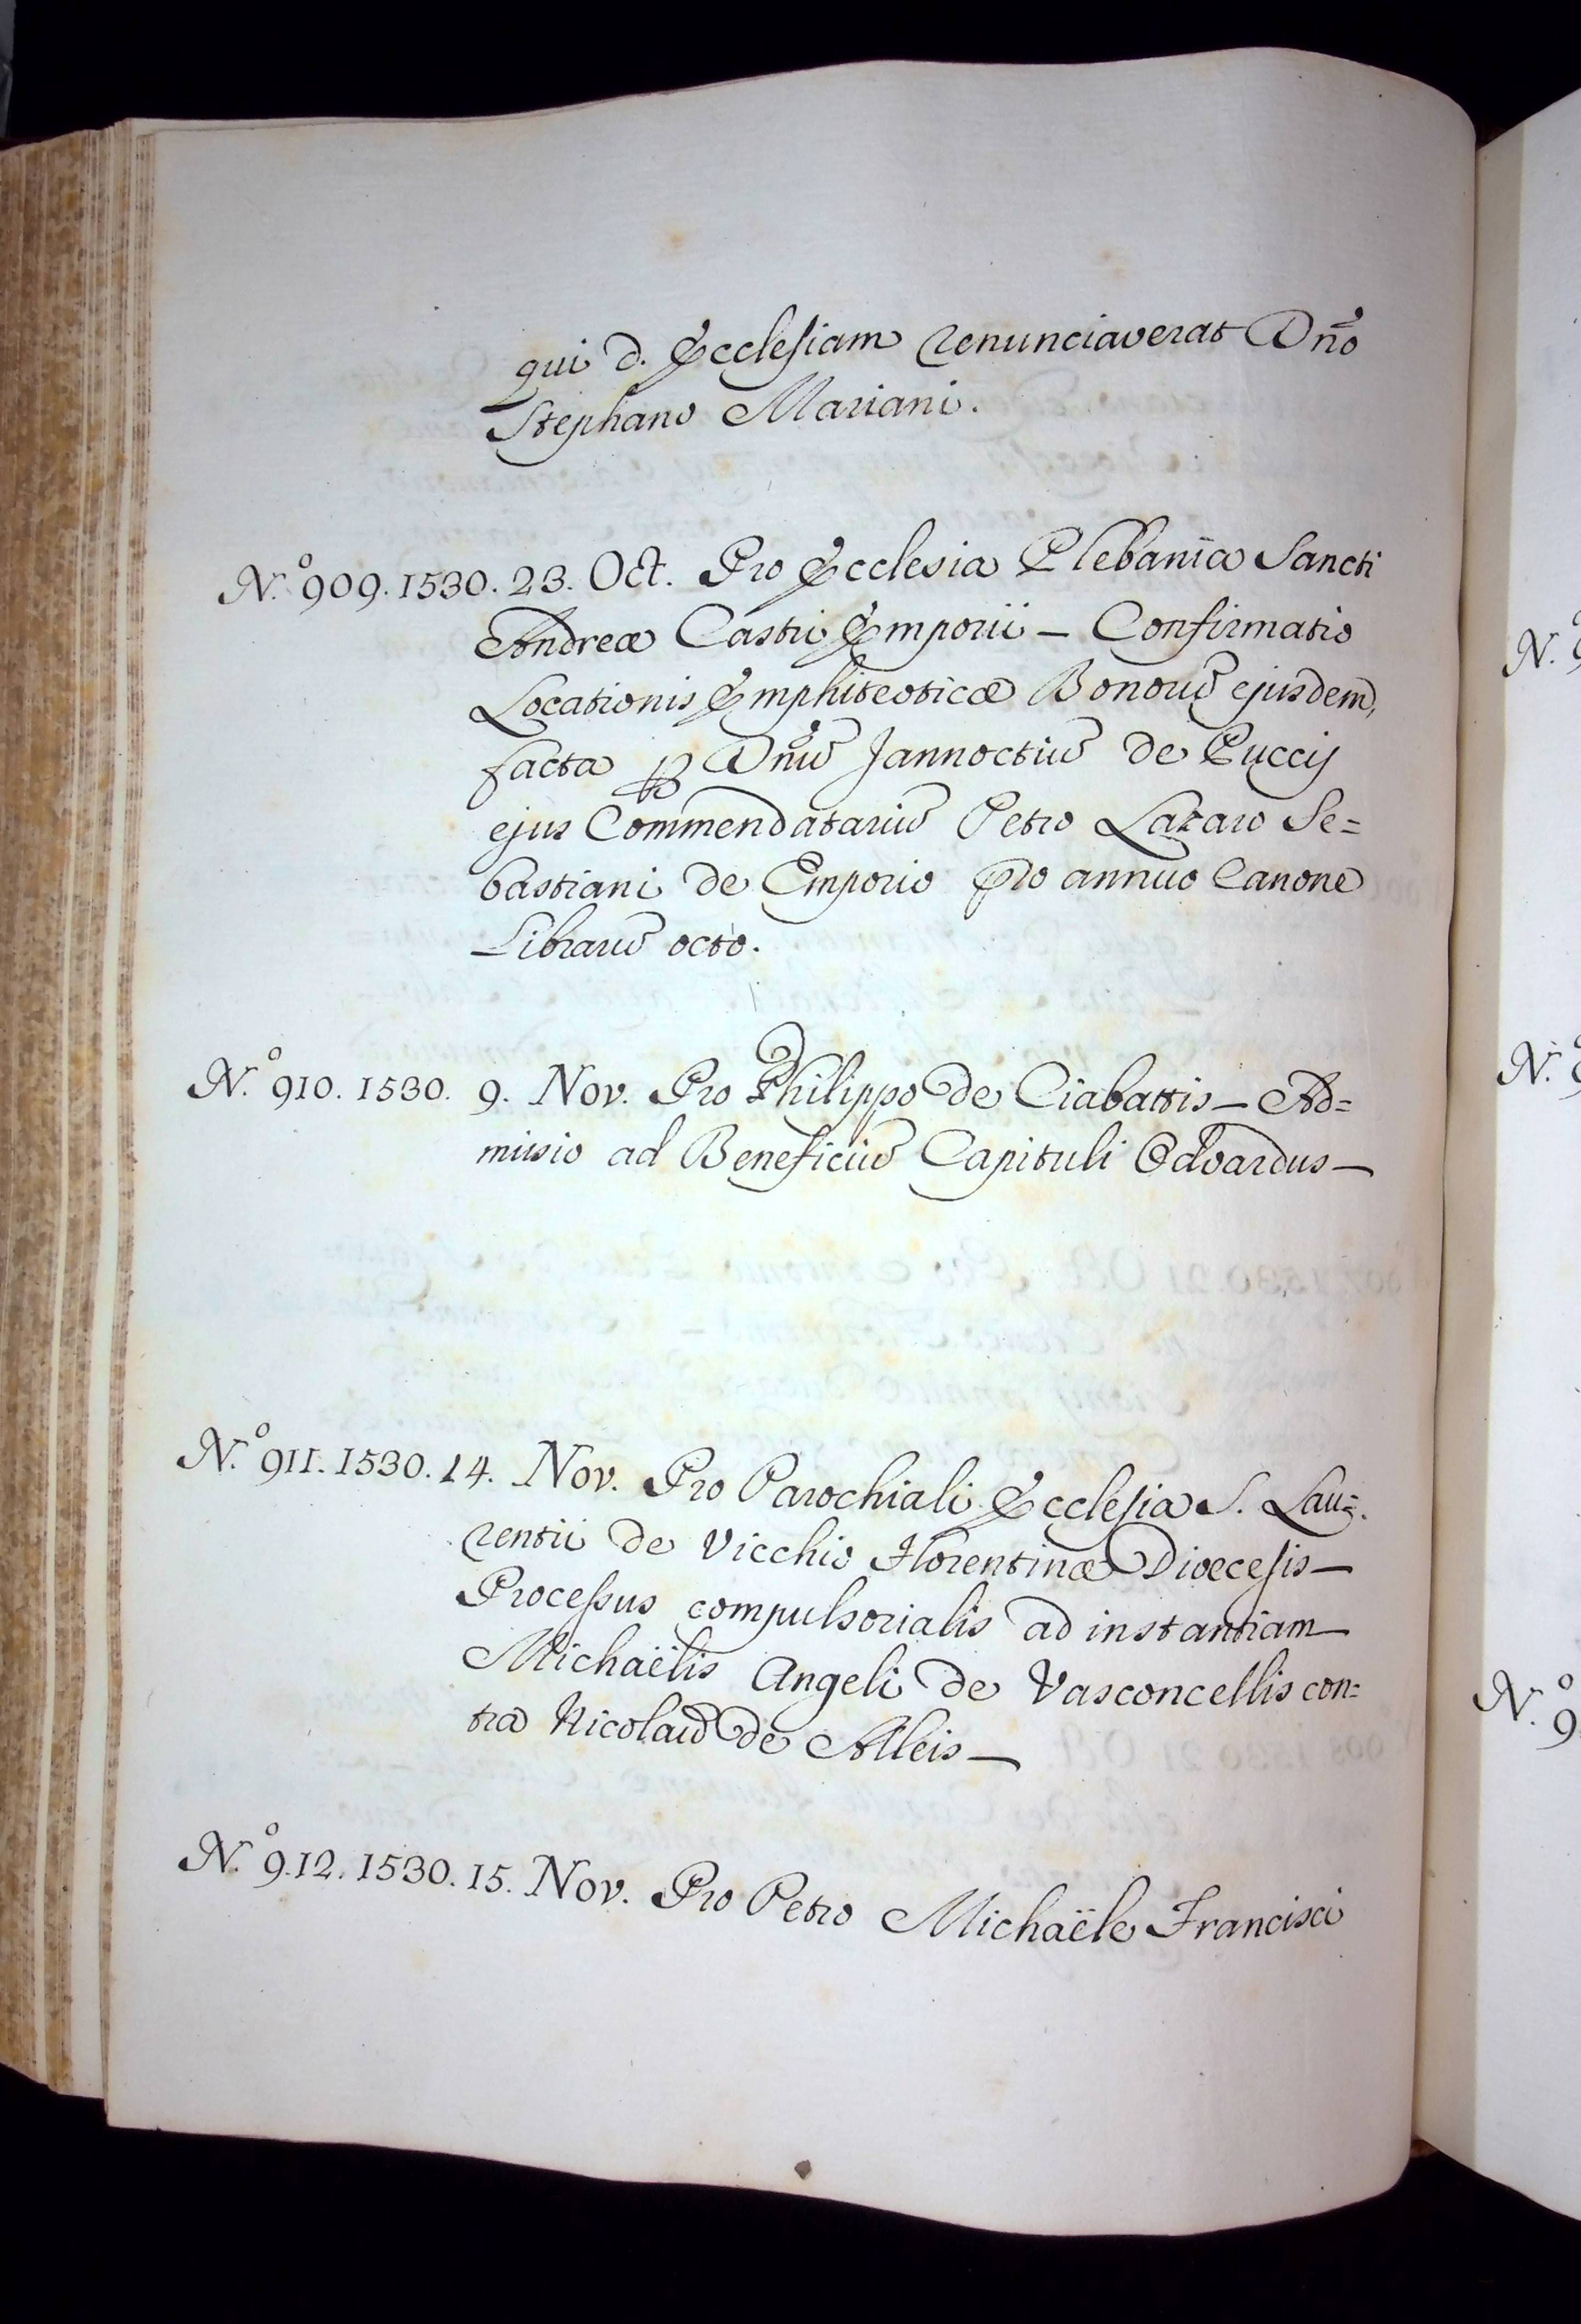 qui d. Ecclesiam renunciaverat Dño
Stephano Mariani.
N.º 909. 1530. 23. Oct. Pro Ecclesia Plebania Sancti
Andreæ Castri Emporii — Confirmatio
Locationis Emphiteoticæ Bonorū ejusdem,
facta ꝑ Dñū Jannoctiū de Puccij
ejus Commendatariū Petro Lazaro Se=
bastiani de Emporio pro annuo Canone
Librarū octo.
N.º 910. 1530. 9. Nov. Pro Philippo de Ciabattis — Ad=
missio ad Beneficiū Capituli Odoardus —
N.º 911. 1530. 14. Nov. Pro Parochiali Ecclesia S. Lau=
rentii de Vicchio Florentinæ Dioecesis —
Processus compulsorialis ad instantiam
Michaëlis Angeli de Vasconcellis con=
tra Nicolaū de Alleis —
N.º 9.12. 1530. 15. Nov. Pro Petro Michaële Francisci
N.º
N.
N.º 9